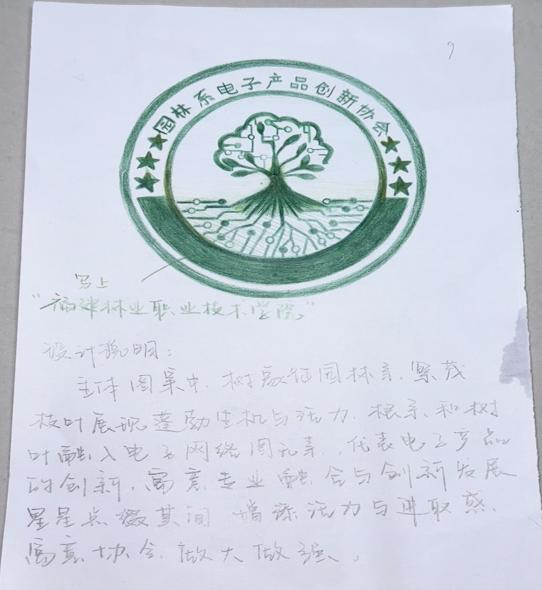 园林系电子产品创新协会
写上
"福建林业职业技术学院"
设计说明:
主体图案中,树象征园林系,繁茂
枝叶展现蓬勃生机与活力,根系和树
叶融入电子网络图元素,代表电子产品
的创新,寓意专业融合与创新发展
星星点缀其间 增添活力与进取感,
寓意协会做大做强。